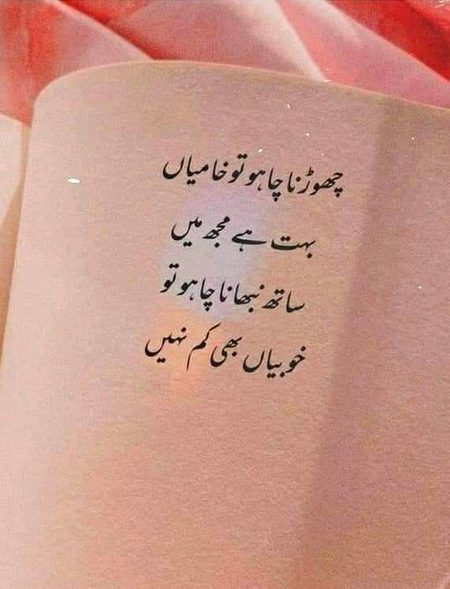 چھوڑنا چاہو تو خامیاں
بہت ہے مجھ میں
ساتھ نبھانا چاہو تو
خوبیاں بھی کم نہیں